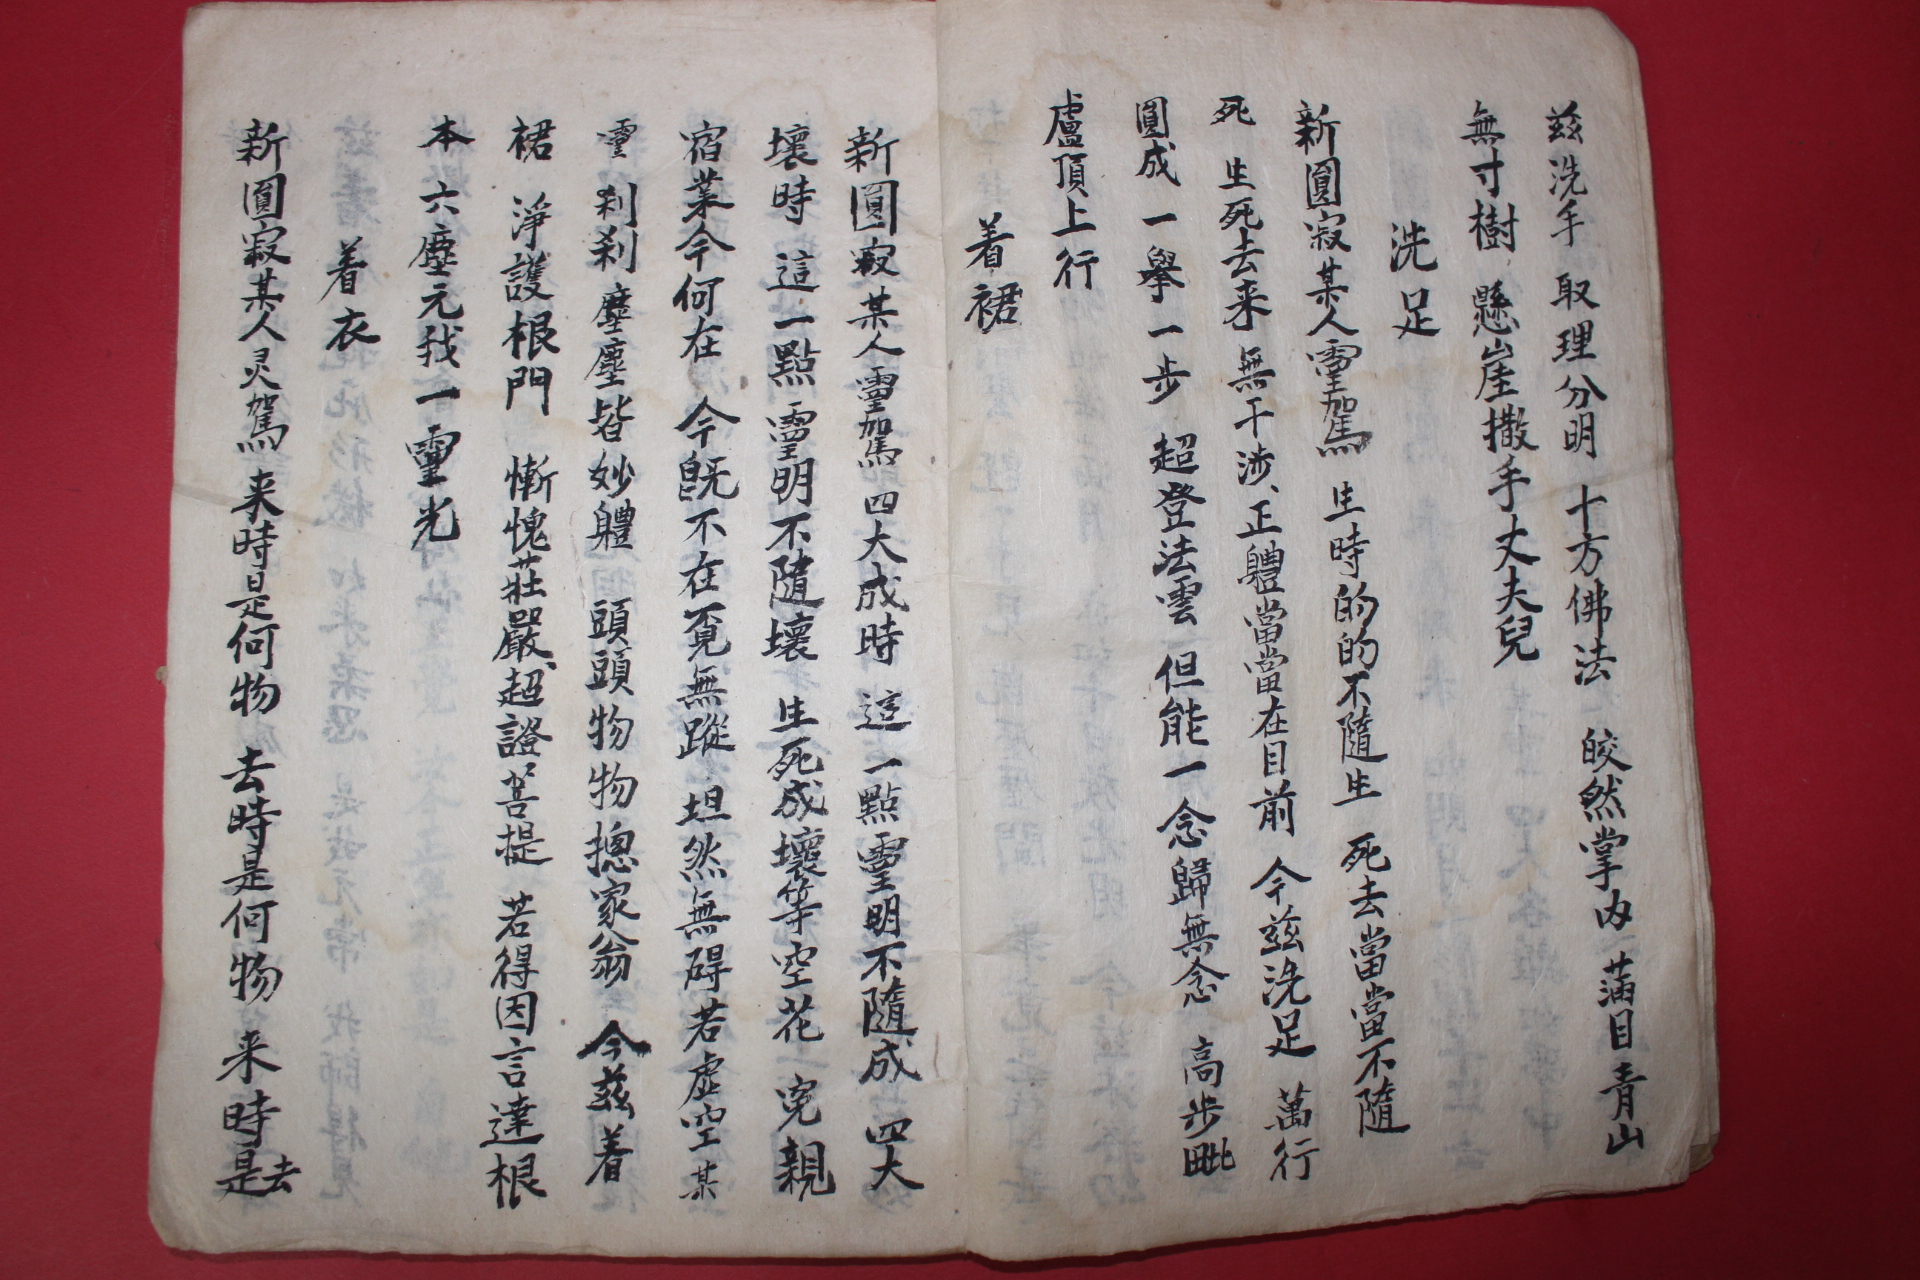 玆洗手 取理分明 十方佛法 皎然掌內 滿目青山
無寸樹 懸崖撒手丈夫兒
洗足
新圓寂某人靈駕 生時的的不隨生 死去當當不隨
死 生死去来 無干涉 正體當當在目前 今玆洗足 萬行
圓成 一擧一步 超登法雲 但能一念歸無念 高步毗
盧頂上行
着裙
新圓寂某人靈駕 四大成時 這一點靈明不隨成 四大
壞時 這一點靈明不隨壞 生死成壞等空花 寃親
宿業今何在 今旣不在覓無蹤 坦然無碍若虛空 某
靈 刹刹塵塵皆妙體 頭頭物物摠家翁 今玆着
裙 淨護根門 慚愧莊嚴 超證菩提 若得因言達根
本 六塵元我一靈光
着衣
新圓寂某人灵駕 来時是何物 去時是何物 来時是去